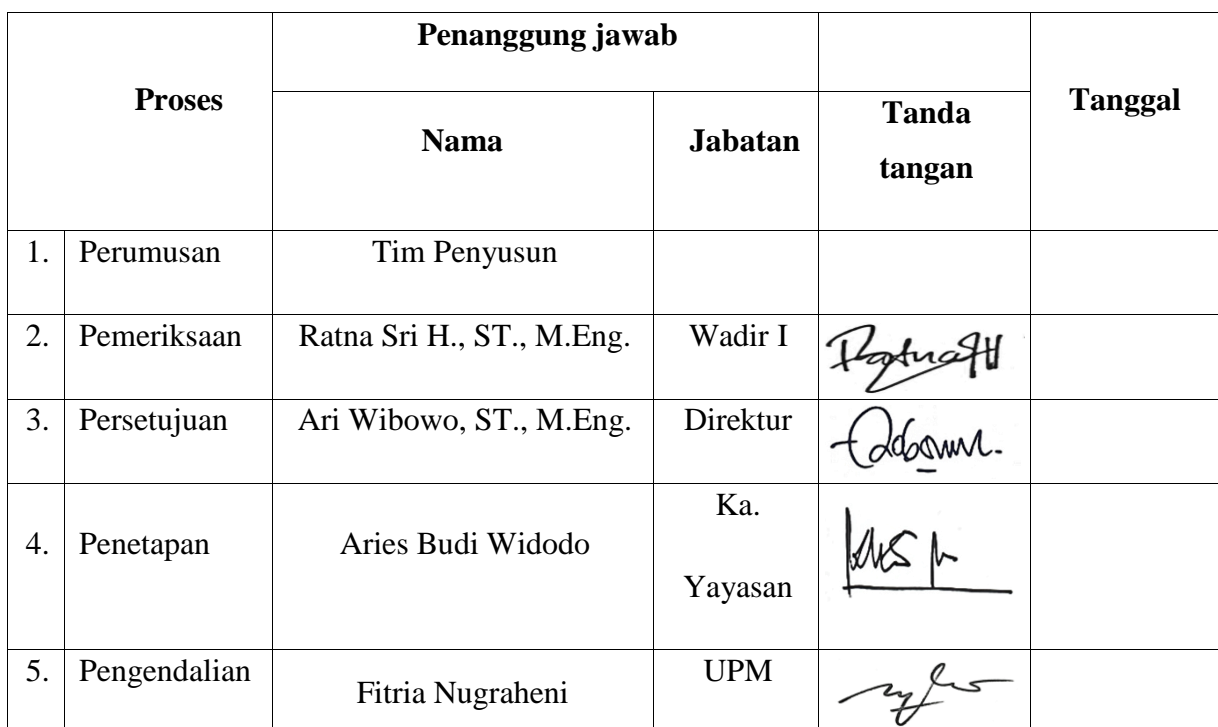 Penanggung jawab
Proses
Tanggal
Nama
Jabatan
Tanda
tangan
1. Perumusan Tim Penyusun
2. Pemeriksaan Ratna Sri H., ST., M.Eng. Wadir I
3. Persetujuan Ari Wibowo, ST., M.Eng. Direktur
4. Penetapan Aries Budi Widodo Ka.
Yayasan
5. Pengendalian Fitria Nugraheni UPM